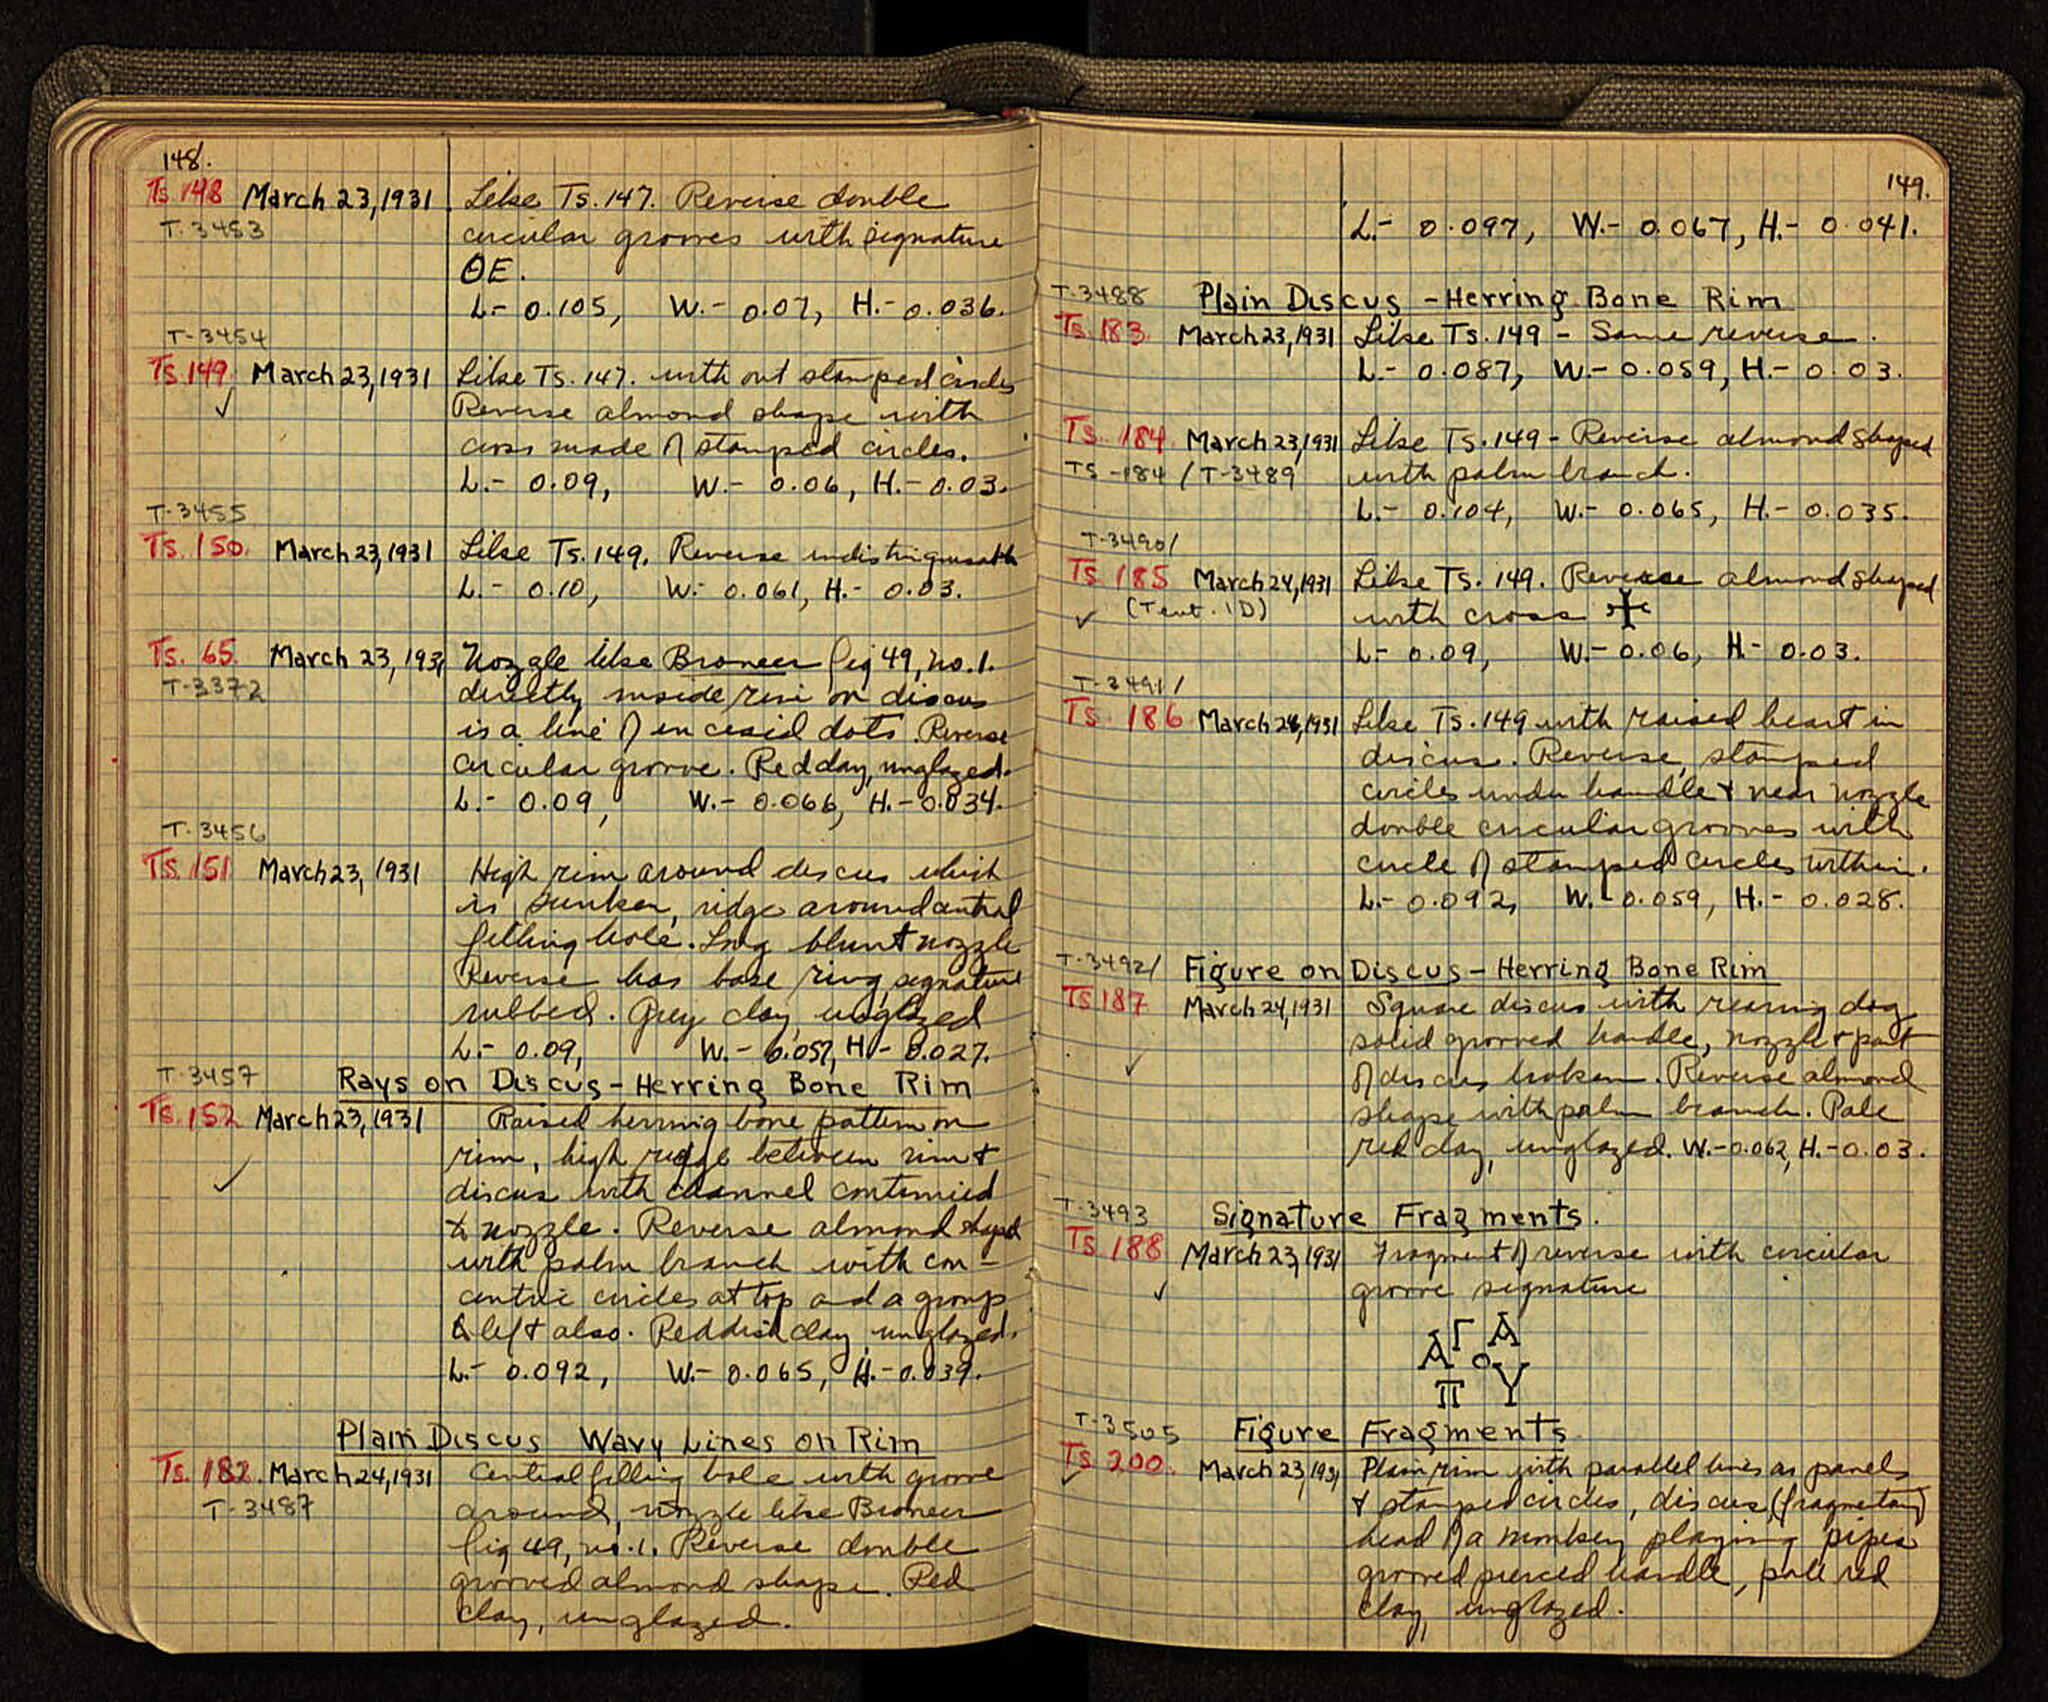 148.
Ts. 148 March 23, 1931 Like Ts. 147. Reverse double
T-3453 circular grooves with signature
ΘE.
L.- 0.105, W.- 0.07, H.- 0.036.
T-3454
Ts. 149 March 23, 1931 Like Ts. 147. with out stamped circles
✓ Reverse almond shape with
cross made of stamped circles.
L.- 0.09, W.- 0.06, H.- 0.03.
T-3455
Ts. 150. March 23, 1931 Like Ts. 149. Reverse
L.- 0.10, W.- 0.061, H.- 0.03.
Ts. 65. March 23, 1931 Nozzle like Broneer fig 49, no. 1.
T-3372 directly inside rim on discus
is a line of dots. Reverse
circular groove. Red clay, unglazed.
L.- 0.09, W.- 0.066, H.- 0.034.
T-3456
Ts. 151 March 23, 1931 High rim around discus which
is sunken, ridge around central
filling hole. Long blunt nozzle
Reverse has base ring, signature
rubbed. Grey clay, unglazed
L.- 0.09, W.- 0.057, H.- 0.027.
T-3457 Rays on Discus - Herring Bone Rim
Ts. 152 March 23, 1931 Raised herring bone pattern on
rim, high ridge between rim +
✓ discus with channel continued
to nozzle. Reverse almond shaped
with palm branch with con-
centric circles at top and a group
to left also. Reddish clay, unglazed.
L.- 0.092, W.- 0.065, H.- 0.039.
Plain Discus Wavy Lines on Rim
Ts. 182. March 24, 1931 Central filling hole with groove
T-3487 around, nozzle like Broneer
fig 49, no. 1. Reverse double
grooved almond shape. Red
clay, unglazed.
149.
L.- 0.097, W.- 0.067, H.- 0.041.
T-3488 Plain Discus - Herring Bone Rim
Ts. 183. March 23, 1931 Like Ts. 149 - Same reverse.
L.- 0.087, W.- 0.059, H.- 0.03.
Ts. 184. March 23, 1931 Like Ts. 149 - Reverse almond shaped
TS-184 / T-3489 with palm branch.
L.- 0.104, W.- 0.065, H.- 0.035.
T-3490/
Ts. 185 March 24, 1931 Like Ts. 149. Reverse almond shaped
✓ (Tent. ID) with cross
L.- 0.09, W.- 0.06, H.- 0.03.
T-3491/
Ts. 186 March 24, 1931 Like Ts. 149 with raised heart in
discus. Reverse, stamped
circles under handle + near nozzle
double circular grooves with
circle of stamped circles within.
L.- 0.092, W.- 0.059, H.- 0.028.
T-3492/ Figure on Discus - Herring Bone Rim
Ts 187 March 24, 1931 Square discus with rearing dog
solid grooved handle, nozzle + part
✓ of discus broken. Reverse almond
shape with palm branch. Pale
red clay, unglazed. W.- 0.062, H.- 0.03.
T-3493 Signature Fragments.
Ts. 188 March 23, 1931 Fragment of reverse with circular
✓ groove signature
Α Γ Α
Π Ο Υ
T-3505 Figure Fragments
Ts. 200. March 23, 1931 Plain rim with parallel lines as panels
✓ + stamped circles, discus (fragmentary)
head of a monkey playing pipes
grooved pierced handle, pale red
clay, unglazed.